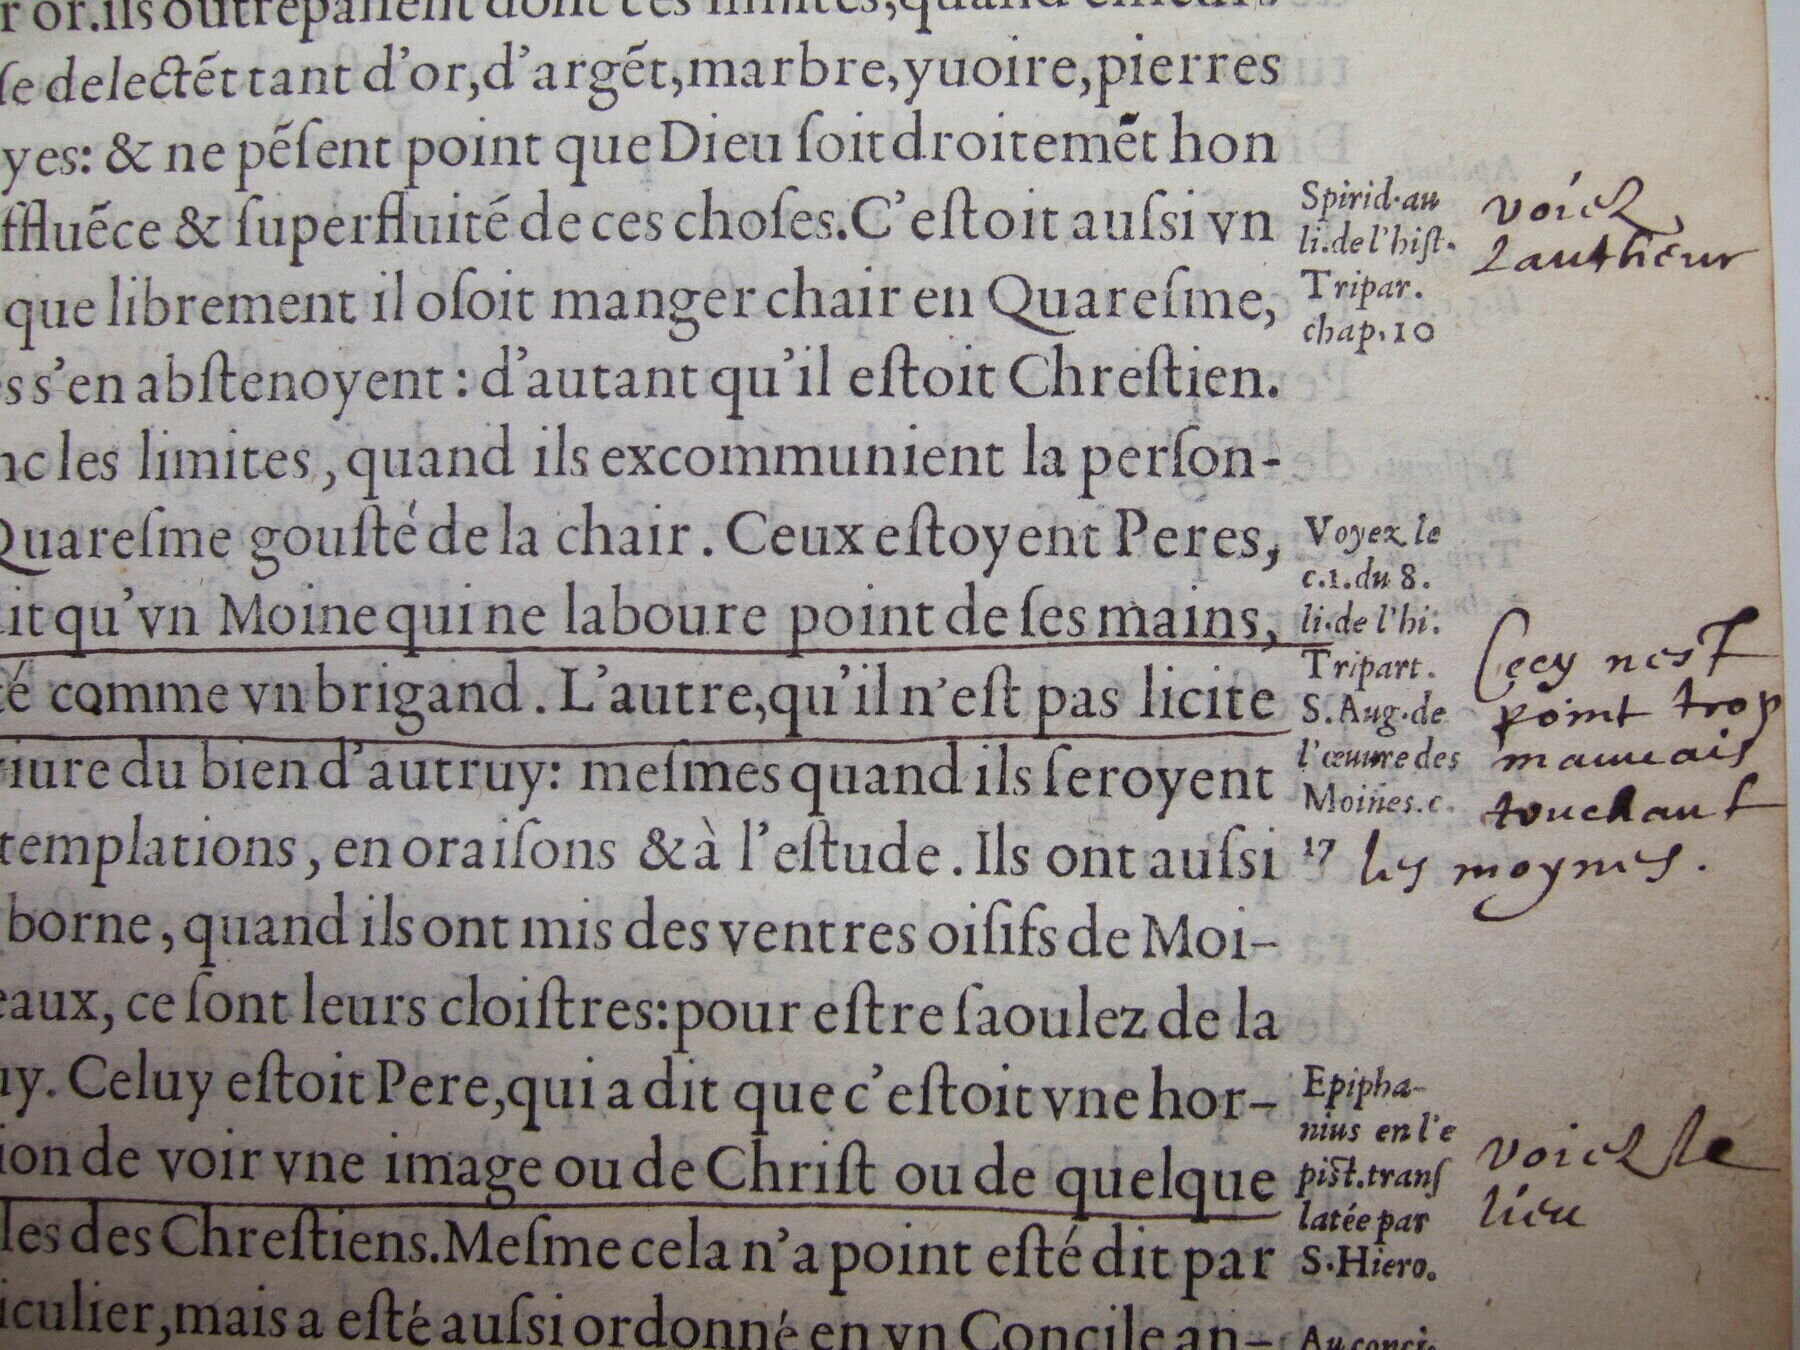 r or. ils outrepassent donc ces limites, quand
se delectẽt tant d'or, d'argẽt, marbre, yuoire, pierres
yes: & ne pẽsent point que Dieu soit droitemẽt hon
ffluẽce & superfluité de ces choses. C'estoit aussi vn
que librement il osoit manger chair en Quaresme,
s s'en abstenoyent : d'autant qu'il estoit Chrestien.
nc les limites, quand ils excommunient la person-
Quaresme gousté de la chair. Ceux estoyent Peres,
it qu'vn Moine qui ne laboure point de ses mains,
é comme vn brigand. L'autre, qu'il n'est pas licite
iure du bien d'autruy: mesmes quand ils seroyent
templations, en oraisons & à l'estude. Ils ont aussi
borne, quand ils ont mis des ventres oisifs de Moi-
eaux, ce sont leurs cloistres: pour estre saoulez de la
uy. Celuy estoit Pere, qui a dit que c'estoit vne hor-
ion de voir vne image ou de Christ ou de quelque
les des Chrestiens. Mesme cela n'a point esté dit par
iculier, mais a esté aussi ordonné en vn Concile an-
Spirid. au
li. de l'hist.
Tripar.
chap. 10
voiez
lautheur
Voyez le
c.1. du 8.
li. de l'hi.
Tripart.
S. Aug. de
l'œuure des
Moines. c.
17
Cecy nest
point trop
mauuais
touchant
les moynes.
Epipha-
nius en l'e
pist. trans
latée par
S. Hiero.
voiez le
lieu
Au conci.